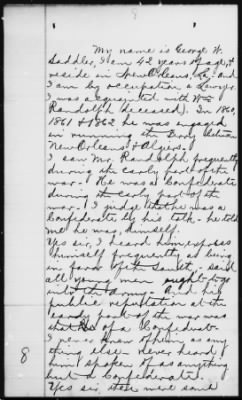 My name is George W.
Saddler, I am 42 years of age, &
reside in New Orleans, La. and
I am by occupation a Lawyer.
I was acquainted with W
Randolph (deceased). In 1860,
1861 & 1862 he was engaged
in running the Ferry between
New Orleans & Algiers.
I saw Mr. Randolph frequently
during the early part of the
war. He was a Confederate
during the early part of the
war. I judge that he was a
Confederate by his talk - he told
me he was, himself.
Yes sir, I heard him express
himself frequently as being
in favor of the said
all young men ought to go
into the army. And his
public reputation at the
early part of the war was
that of a Confederate
I never knew of him as any
thing else - never heard
him spoken of as anything
but a Confederate.
Yes sir, there were some
8